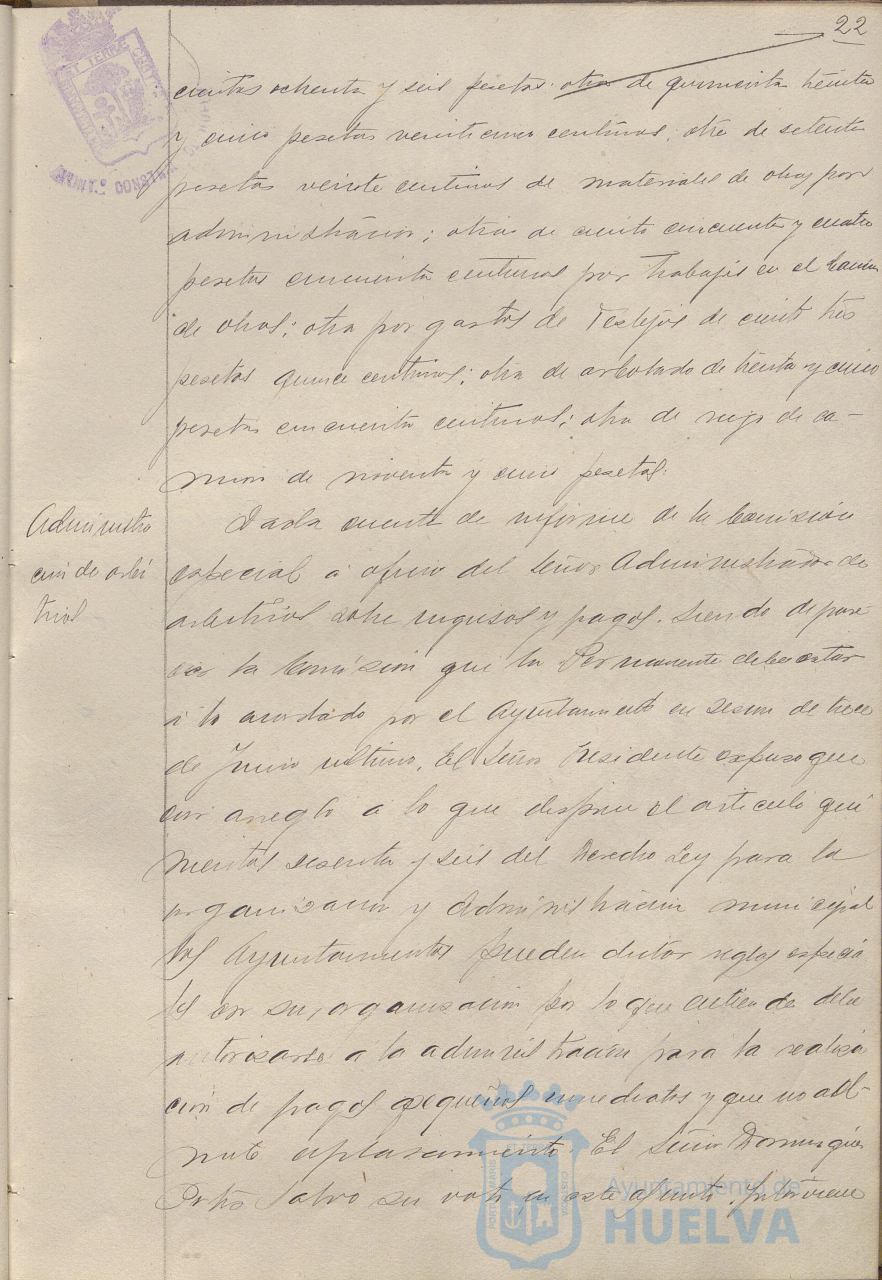 22
cientas ochenta y seis pesetas. otra de quinientas treinta
y cinco pesetas veinticinco centimos; otra de setenta
pesetas veinte centimos de materiales de obras por
administración; otra de ciento cincuenta y cuatro
pesetas cincuenta centimos por trabajos en el
de obras; otra por gastos de Festejos de ciento tres
pesetas quince centimos; otra de arbolado de treinta y cinco
pesetas cincuenta centimos; otra de riego de ca-
mion de noventa y cinco pesetas.
Administra
cion de arbi
trios
Dada cuenta de informe de la Comisión
especial a oficio del Señor Administrador de
arbitrios sobre ingresos y pagos. siendo de pare-
cer la Comisión que la Permanente debe estar
a lo acordado por el Ayuntamiento en sesion de trece
de Junio ultimo. El Señor Presidente expuso que
con arreglo a lo que dispone el articulo qui
nientos sesenta y seis del Decreto Ley para la
organizacion y Administración municipal
los Ayuntamientos pueden dictar reglas especia
les con su organización por lo que entiende debe
autorizarse a la administración para la realiza
cion de pagos pequeños inmediatos y que no ad-
mite aplazamiento. El Señor Dominguez
Salvó su voto en este asunto.
Ayuntamiento de
HUELVA